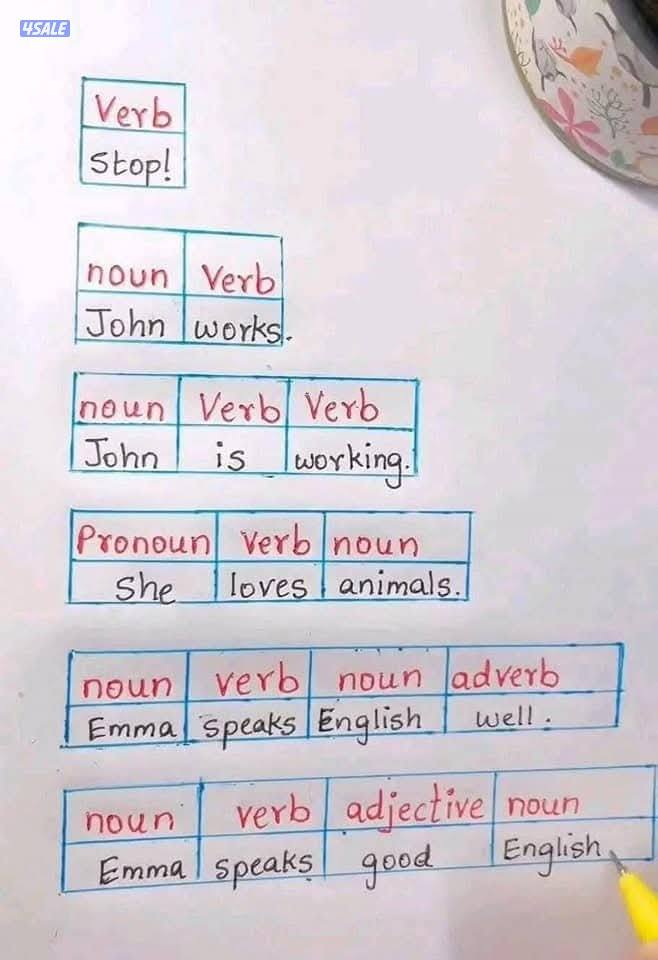 4SALE
Verb
Stop!
noun Verb
John works.
noun Verb Verb
John is working.
Pronoun verb noun
She loves animals.
noun verb noun adverb
Emma speaks English well.
noun verb adjective noun
Emma speaks good English